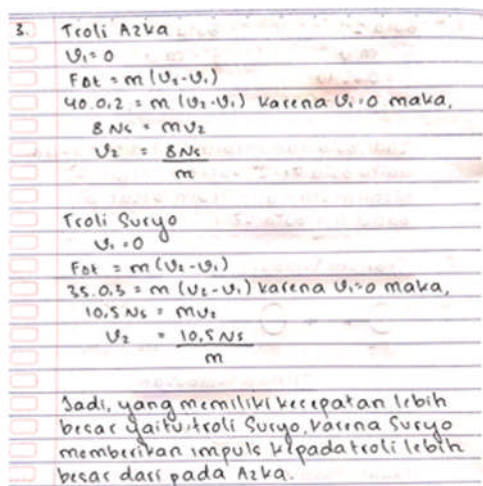 3. Troli Azka
v₁ = 0
F∆t = m (v₂ - v₁)
40.0,2 = m (v₂ - v₁) karena v₁ = 0 maka,
8 Ns = mv₂
v₂ = 8 Ns
m
Troli Suryo
v₁ = 0
F∆t = m (v₂ - v₁)
35.0,3 = m (v₂ - v₁) karena v₁ = 0 maka,
10,5 Ns = mv₂
v₂ = 10,5 Ns
m
Jadi, yang memiliki kecepatan lebih
besar yaitu troli Suryo, karena Suryo
memberikan impuls kepada troli lebih
besar dari pada Azka.